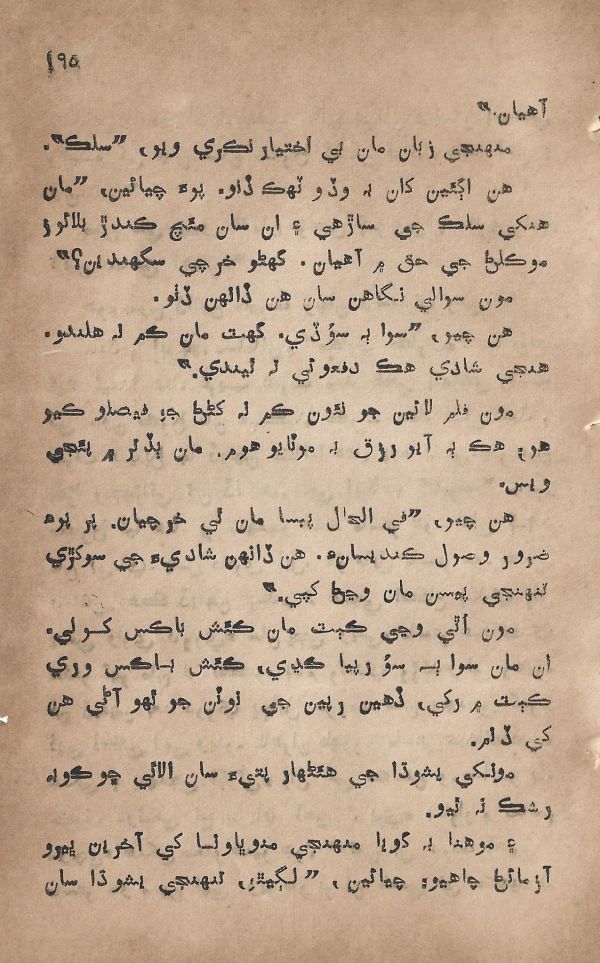 ١٩٥
آهيان."
منهنجي زبان مان بي اختيار نڪري ويو، "سلڪ".
هن اڳئين کان بہ وڏو ٽهڪ ڏنو. پوءِ چيائين، "مان
هنکي سلڪ جي ساڙهي ۽ ان سان مئچ ڪندڙ بلائوز
موڪلڻ جي حق ۾ آهيان. گهڻو خرچي سگهندين؟"
مون سوالي نگاهن سان هن ڏانهن ڏٺو.
هن چيو، "سوا بہ سؤ ڏي. گهٽ مان ڪم نہ هلندو.
هنجي شادي هڪ دفعو ئي نہ ٿيندي."
مون فلم لائين جو نئون ڪم نہ کڻڻ جو فيصلو ڪيو
هو؛ هڪ بہ آيو رزق بہ موٽايو هوم. مان ٻڏتر ۾ پئجي
ويس.
هن چيو، "في الحال پئسا مان ٿي خرچيان. پر پوءِ
ضرور وصول ڪنديسانءِ. هن ڏانهن شاديءَ جي سوکڙي
تنهنجي پئسن مان وڃڻ کپي."
مون اٿي وڃي ڪٻٽ مان ڪئش باڪس کولي.
ان مان سوا بہ سؤ رپيا ڪڍي، ڪئش باڪس وري
ڪٻٽ ۾ رکي، ڏهين رپين جي نوٽن جو ٿهو آڻي هن
کي ڏنم.
مونکي يشوڌا جي هٿڻهار پتيءَ سان الائي ڇو ڪو بہ
رشڪ نہ ٿيو.
۽ موهنا بہ گويا منهنجي منوڀاونا کي آخرين ڀيرو
آزمائڻ چاهيو؛ چيائين، "لڳيٿو، تنهنجي يشوڌا سان